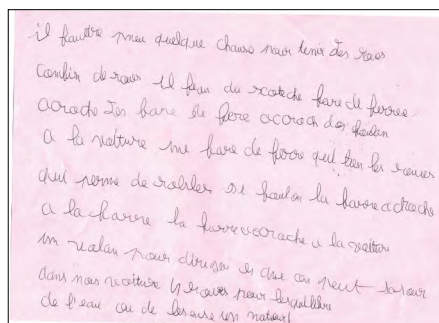 il fautre pneu quelque chause pour tenir des roues
combin de roues il faux du scoteche bare de ferree
acroche des bare de fere accroch des boulon
a la voiture une bare de ferre qui tien les roues
qui perme de roobler se boulon la barre acroche
a la barre la barre accroche a la voiture
un volan pour diriger es que on peut savoir
dans nos voiture 4 roues pour l'equilibre
de l'eau ou de l'essense un moteur